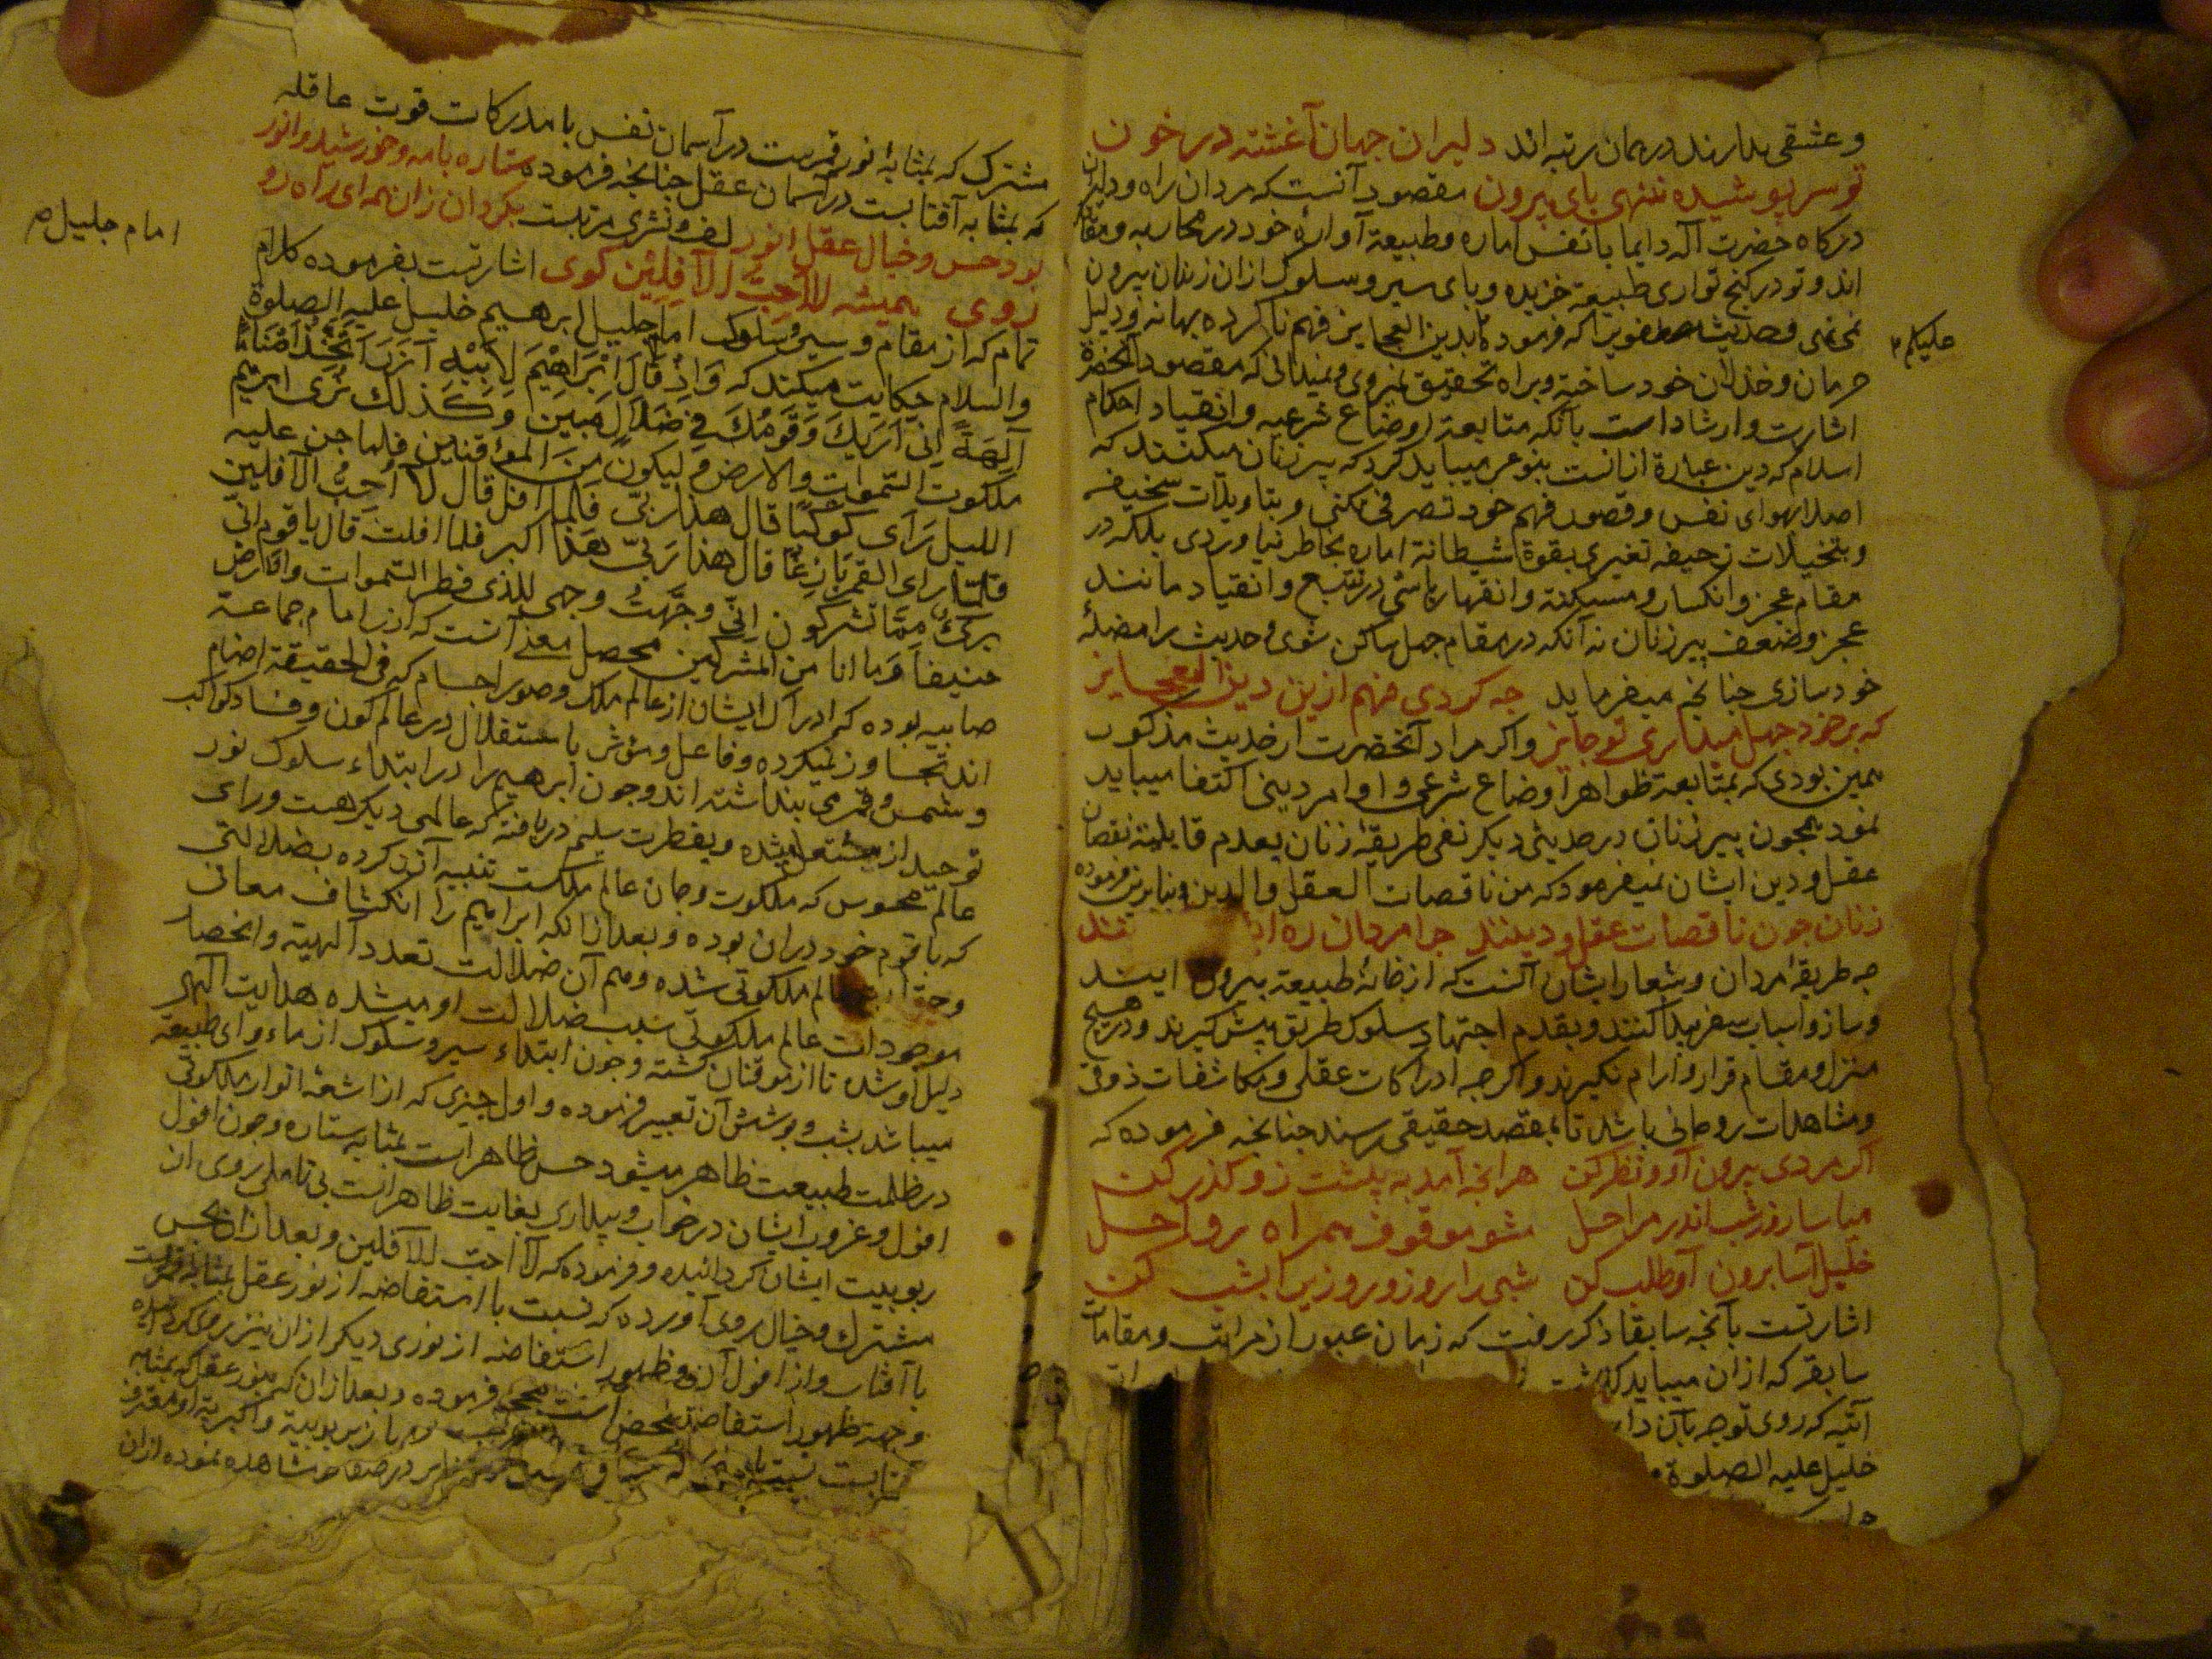 و عشقی ندارند در همان رتبه اند دلیران جهان آغشته در خون
تو سر پوشیده ننهی پای بیرون مقصود آنست که مردان راه و دلیران
درکاه حضرت اله دایما با نفس اماره و طبیعة آواره خود در محاربه و مقا
اند و تو در کنج تواری طبیعة خزیده و پای سیر و سلوک ازان زندان بیرون
نمی نهی و حدیث را که فرموده بدین العجایز فهم ناکرده بهانه و دلیل
حرمان و خذلان خود ساخته و براه تحقیق نمیروی و نمیدانی که مقصود آنحضرة
اشارت و ارشاد است بآنکه متابعة اوضاع شرعیه و انقیاد احکام
اسلام که دین عبارة ازانست بنوعی میباید کرد که پیر زنان میکنند که
اصلا بهوای نفس و قصور فهم خود تصرفی نکنی و بتاویلات سخیفه
و بتخیلات زحیفه تغیری بقوة شیطانة اماره بخاطر نیاوردی بلکه در
مقام عجز و انکسار و مسکنة و انقهار باشی در تتبع و انقیاد مانند
عجز و ضعف پیر زنان نه آنکه در مقام جهل ساکن شوی و حدیث را مضلهٔ
خود سازی جنانجه میفرماید جه کردی فهم ازین دین العجایز
که بر خود جهل میداری تو جایز و اکر مراد آنحضرت از حدیث مذکور
همین بودی که بمتابعة ظواهر اوضاع شرعی و اوامر دینی اکتفا میباید
نمود همچون پیر زنان در حدیثی دیکر نفی طریقهٔ زنان بعدم قابلیة نقصان
عقل و دین ایشان نمیفرمود که من ناقصات العقل والدین و بنابرین فرموده
زنان جون ناقصات عقل و دینند جرا مردان ره
جه طریقهٔ مردان و شعار ایشان آنست که از خانهٔ طبیعة بیرون ایند
و ساز و اسباب سفر پیدا کنند و بقدم اجتهاد سلوک طریق پیش کیرند و در هیچ
منزل و مقام قرار و ارام نکیرند و اکرجه ادراکات عقلی و مکاشفات ذوقی
و مشاهدات روحانی باشد تا بمقصد حقیقی رسند جنانجه فرموده که
اکر مردی برون آو و نظر کن هر انجه آمد به پیشت زو کذر کن
میاسا روز شب اندر مراحل مشو موقوف همراه رواحل
خلیل آسا برون آو طلب کن شبی را روز و روزیرا بشب کن
اشارتست بآنجه سابقا ذکر رفت که زمان عبور از مراتب و مقامات
سابقه که ازان میباید
آتیه که روی توجه بآن دا
خلیل علیه الصلوة
علیکم
مشترک که بمثابهٔ نور قمرست در آسمان نفس با مدرکات قوت عاقله
که بمثابه آفتابست در آسمان عقل جنانجه فرموده ستاره با مه و خورشید و انور
بود حس و خیال عقل انور لف و نشری مرتبست بکردان زان همه ای راه رو
روی همیشه لا احب الآفلین کوی اشارتست بفرموده کلام
تمام که از مقام و سیر و سلوک امام جلیل ابرهیم خلیل علیه الصلوة
والسلام حکایت میکند که وَاِذْ قَالَ اِبْرَاهِیمَ لِاَبِیْهِ آزَرَ اَتَتَّخِذُ اَصْنَامًا
آلِهَةً اِنِّی اَرَیكَ وَقَوْمَكَ فِی ضَلَالٍ مُبِین وَكَذلك نُرِی ابرهیم
ملكوت السَّموات والارض وَلیكون مِنَ الموقنین فلما جن علیه
اللیل رَآى كَوْكَبًا قال هذا ربّی فلما افل قال لا اُحِبُّ الآفلین
فلمّا رای القمر بازغًا قال هذا رَبّی هذا اكبر فلما افلت قال یا قوم انّی
بریٌ مِمَّا تشركون اِنِّی وجَّهتُ وجهی للذی فطر السّموات والارض
حنیفاً وَما انا من المشركین محصل معنی آنست که ازر امام جماعة
صابیه بوده که ادراک ایشان از عالم ملک و صور اجسام که فی الحقیقة اصنام
اند تجاوز نمیکرده و فاعل و موثر باستقلال در عالم کون و فساد کواکب
و شمس و قمر می پنداشته اند و جون ابرهیم را در ابتداء سلوک نور
توحید ازو مشتعل شده و بفطرت سلیم دریافته که عالمی دیکر هست ورای
عالم محسوس که ملکوت و جان عالم ملکست تنبیه آزر کرده بضلالتی
که با قوم خود دران بوده و بعد ازانکه ابراهیم را انکشاف معانی
عالم ملکوتی شده و هم آن ضلالت تعدد آلهیة و انحصار
موجودات عالم ملکوتی سبب ضلالت او میشده هدایت الهی
دلیل او شده تا از موقنان کشته و جون ابتداء سیر و سلوک از ماوراء طبیعة
میباشد بشب و پوشش آن تعبیر فرموده و اول جیزی که از اشعهٔ انوار ملکوتی
در ظلمت طبیعت ظاهر میشود حس ظاهر است بمثابه ستاره و جون افول
افول و غروب ایشان در خواب و بیداری بغایت ظاهر است بی تامل روی ازان
ربوبیت ایشان کردانیده و فرموده که لا احب الآفلین و بعد ازان بحس
مشترک و خیال روی آورده که نسبت با استفاضه از نور عقل بمثابه قمرست
با آفتاب و از افول آن و ظهور استفاضه از نوری دیکر ازان نیز روی کردانیده
و جهة ظهور استفاضه محض فرموده و بعد ازان که بنور عقل که بمثابه
امام جلیل